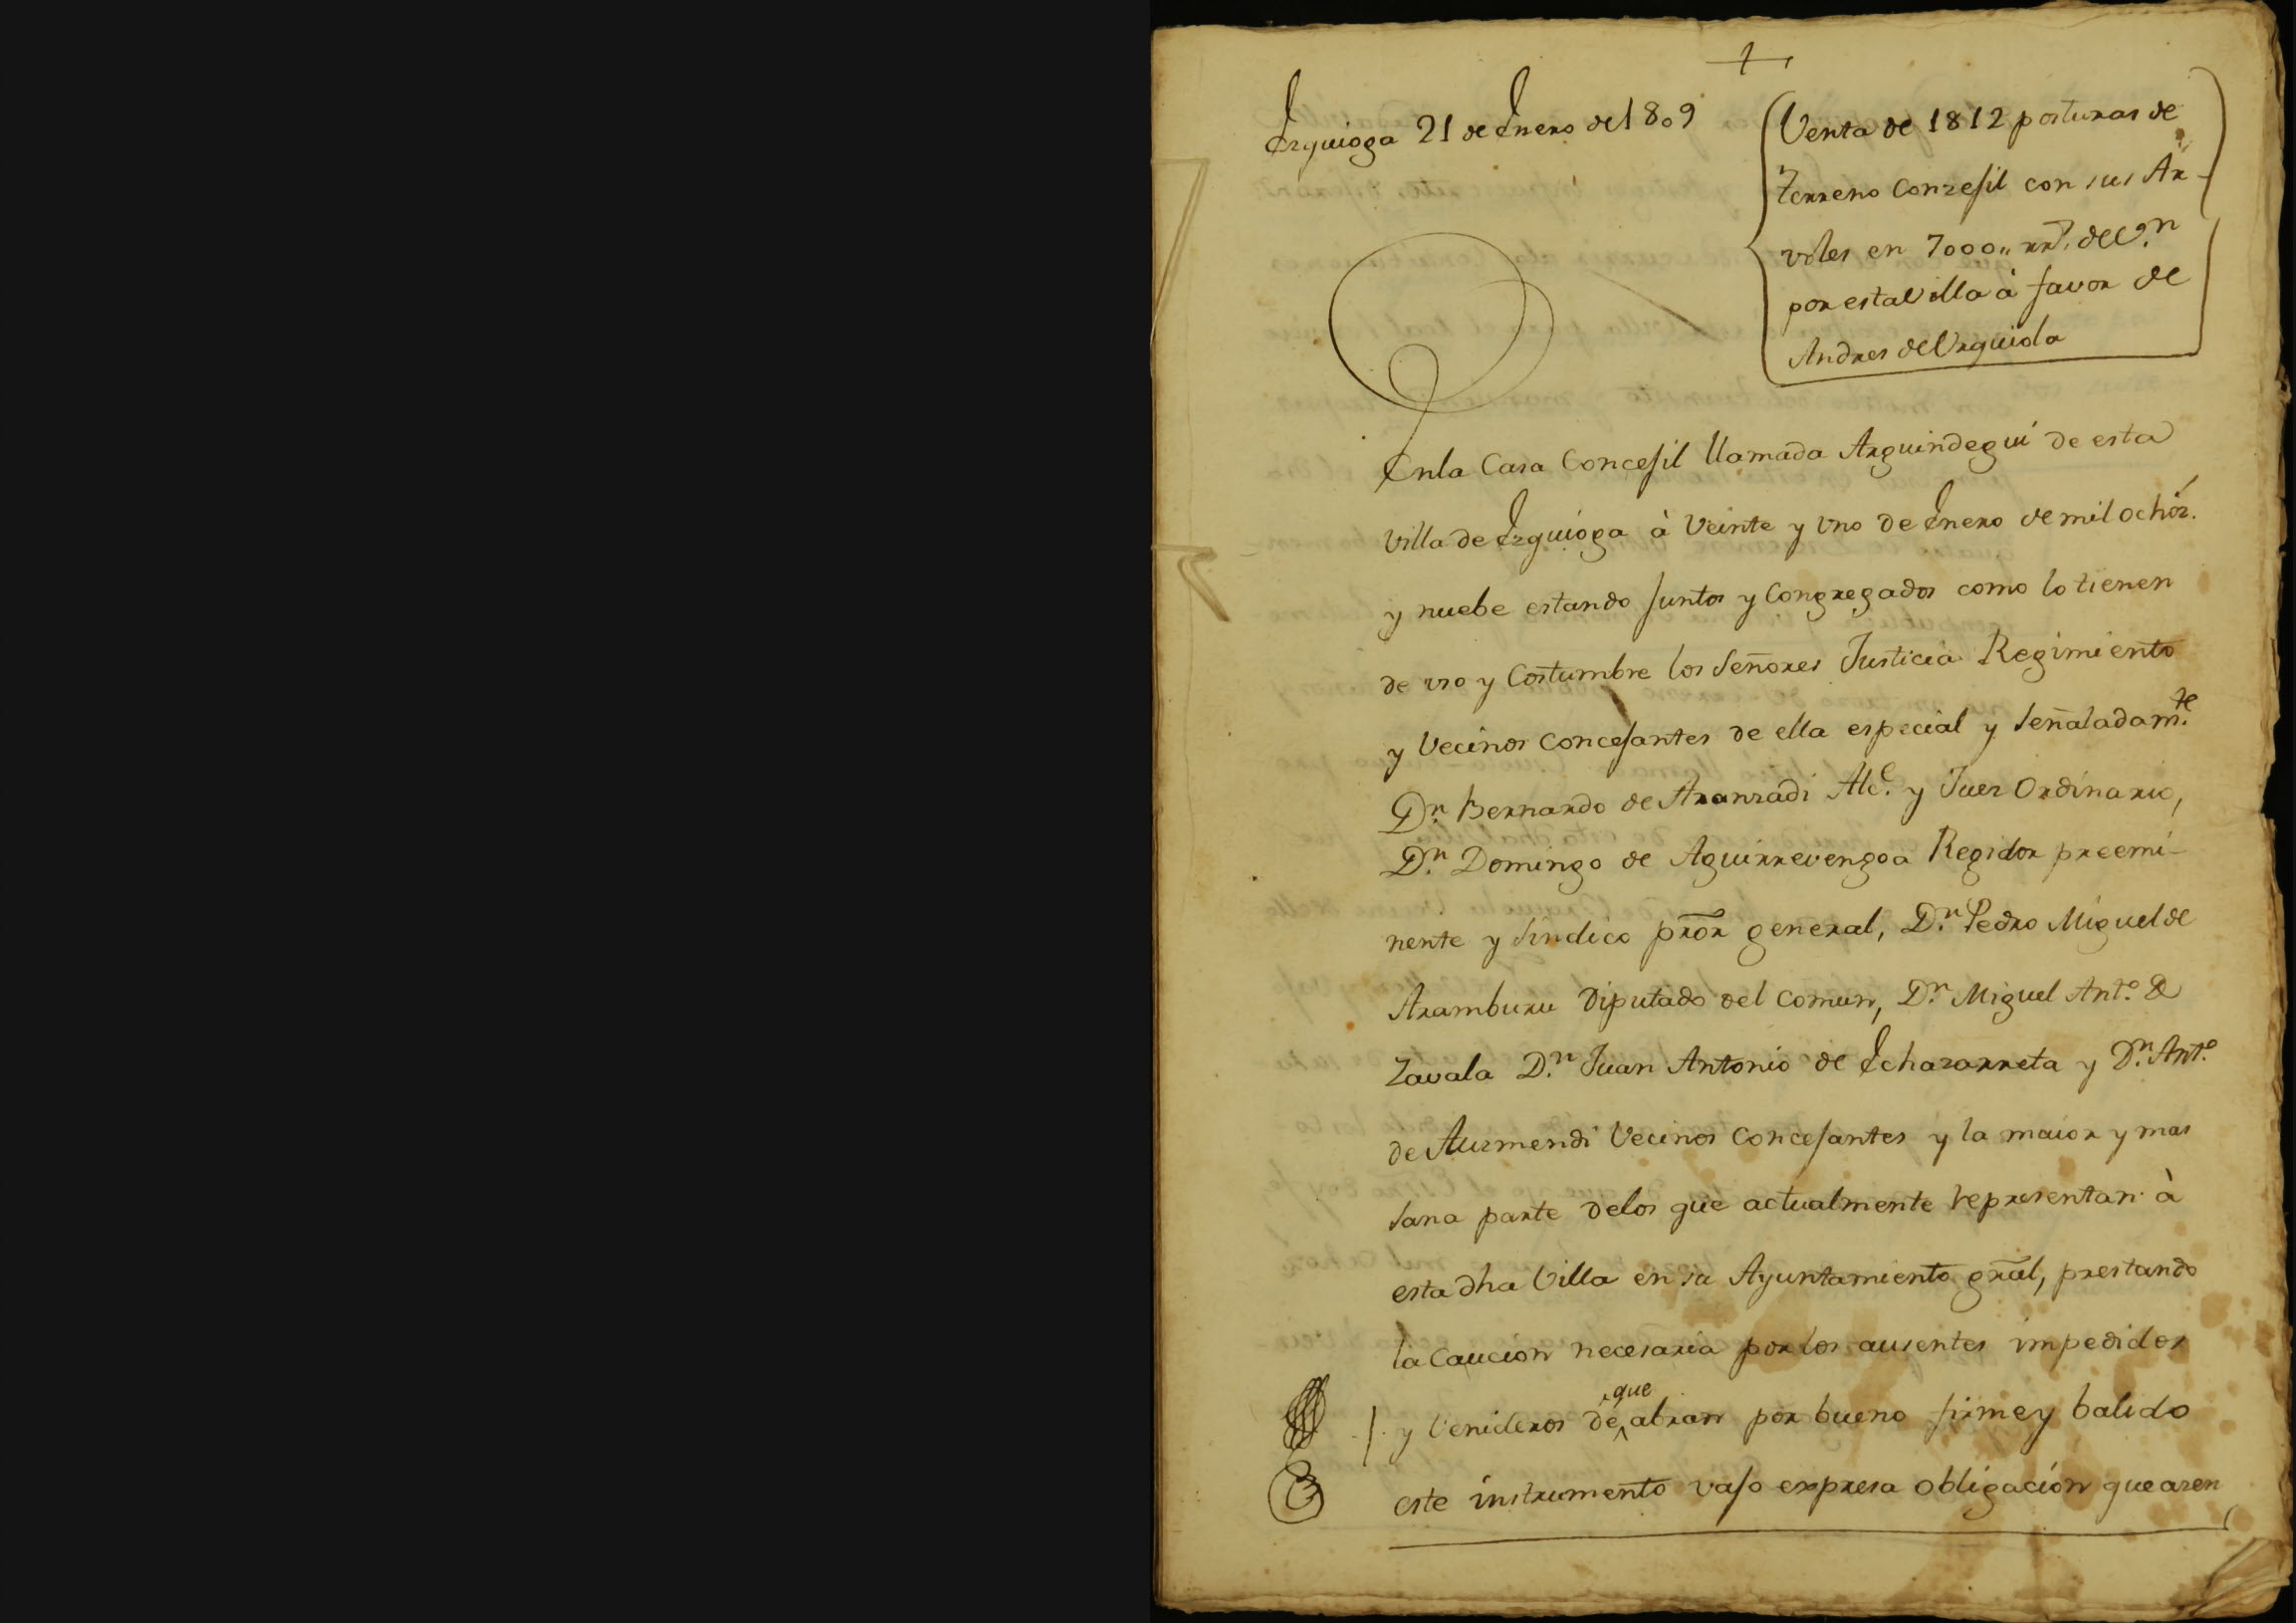 Ezquioga 21 de Enero de 1809
Venta de 1812 posturas de
terreno Conzejil con sus Ar-
voles en 7000,, rr.s de v.n
por esta Villa à favor de
Andres de Urquiola
En la Casa Concejil llamada Arguindegui de esta
Villa de Ezquioga à Veinte y Uno de Enero de mil ochoz.
y nuebe estando juntos y Congregados como lo tienen
de uso y Costumbre los Señores Justicia Regimiento
y Vecinos Concejantes de ella especial y señaladam.te
D.n Bernardo de Aranzadi Alc.e y Juez Ordinario,
D.n Domingo de Aguirrevengoa Regidor preemi-
nente y Sindico pror general, D.n Pedro Miguel de
Aramburu Diputado del Comun, D.n Miguel Ant.o de
Zavala D.n Juan Antonio de Echazarreta y D.n Ant.o
de Auzmendi Vecinos Concejantes y la maior y mas
sana parte de los que actualmente representan à
esta dha Villa en su Ayuntamiento gral, prestando
la Caucion necesaria por los ausentes impedidos
y Venideros de que abran por bueno firme y balido
este instrumento vajo expresa obligación que azen